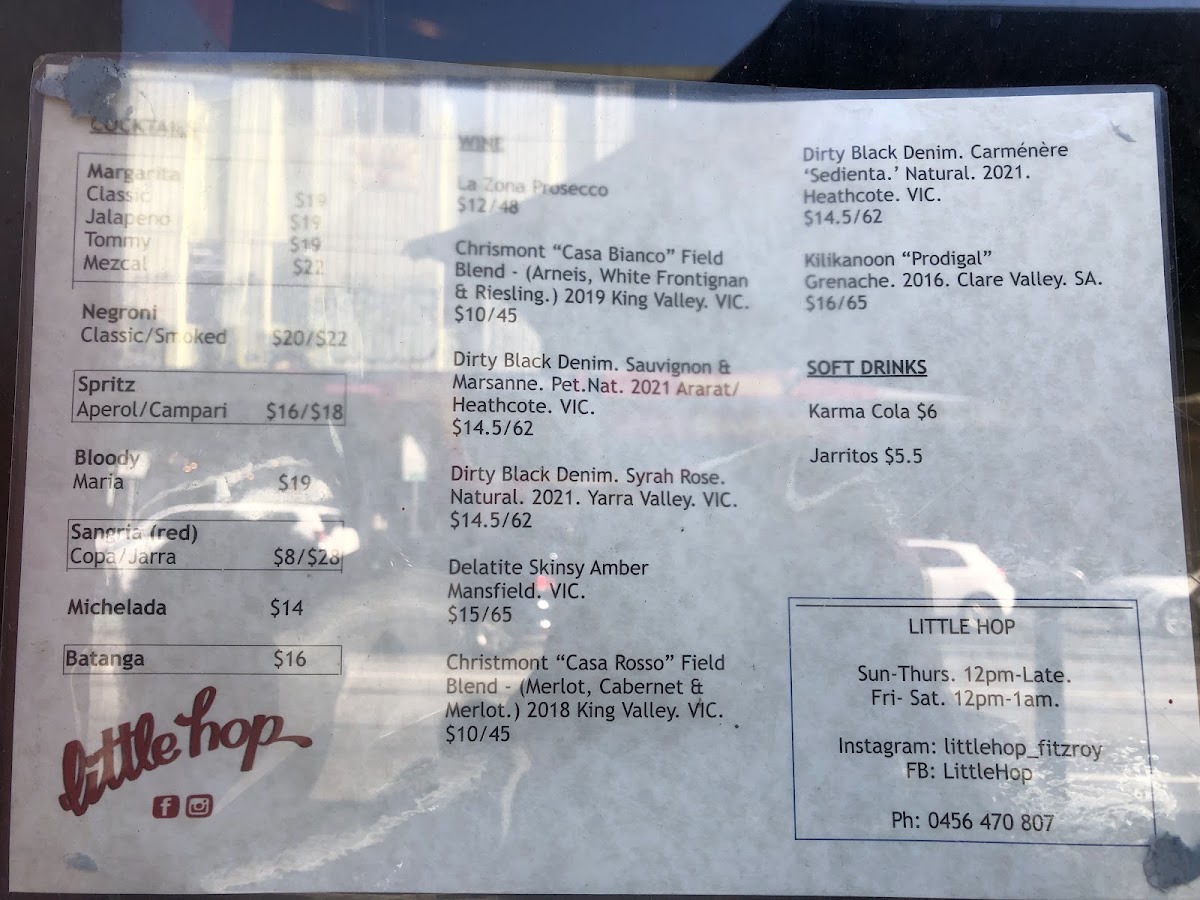 COCKTAILS
Margarita
Classic $19
Jalapeno $19
Tommy $19
Mezcal $22
Negroni
Classic/Smoked $20/$22
Spritz
Aperol/Campari $16/$18
Bloody
Maria $19
Sangria (red)
Copa/Jarra $8/$28
Michelada $14
Batanga $16
little hop
WINE
La Zona Prosecco
$12/48
Chrismont “Casa Bianco” Field
Blend - (Arneis, White Frontignan
& Riesling.) 2019 King Valley. VIC.
$10/45
Dirty Black Denim. Sauvignon &
Marsanne. Pet.Nat. 2021 Ararat/
Heathcote. VIC.
$14.5/62
Dirty Black Denim. Syrah Rose.
Natural. 2021. Yarra Valley. VIC.
$14.5/62
Delatite Skinsy Amber
Mansfield. VIC.
$15/65
Christmont “Casa Rosso” Field
Blend - (Merlot, Cabernet &
Merlot.) 2018 King Valley. VIC.
$10/45
Dirty Black Denim. Carménère
‘Sedienta.’ Natural. 2021.
Heathcote. VIC.
$14.5/62
Kilikanoon “Prodigal”
Grenache. 2016. Clare Valley. SA.
$16/65
SOFT DRINKS
Karma Cola $6
Jarritos $5.5
LITTLE HOP
Sun-Thurs. 12pm-Late.
Fri- Sat. 12pm-1am.
Instagram: littlehop_fitzroy
FB: LittleHop
Ph: 0456 470 807